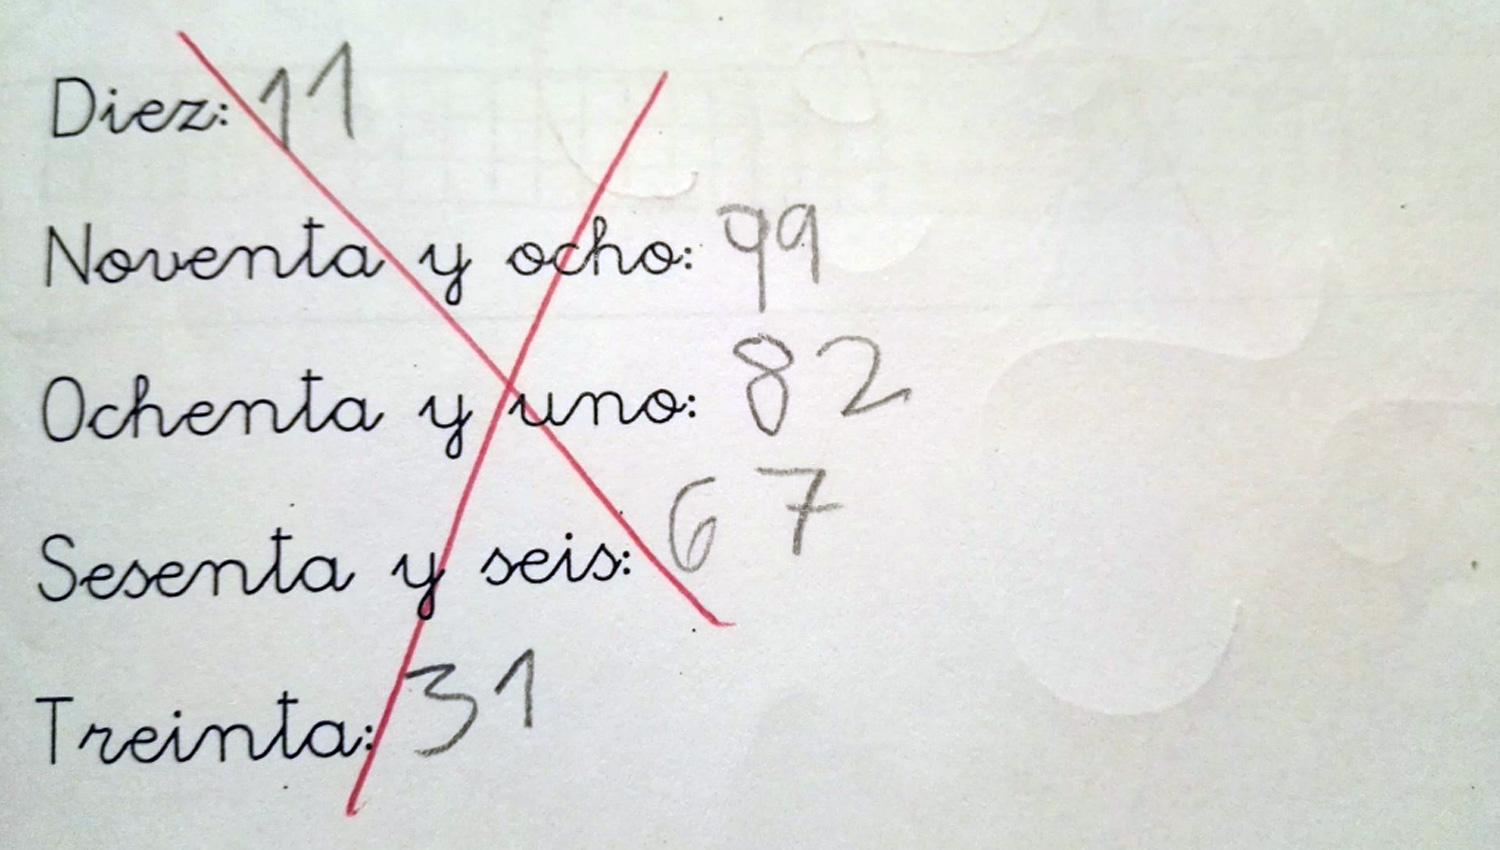 Diez: 11
Noventa y ocho: 99
Ochenta y uno: 82
Sesenta y seis: 67
Treinta: 31